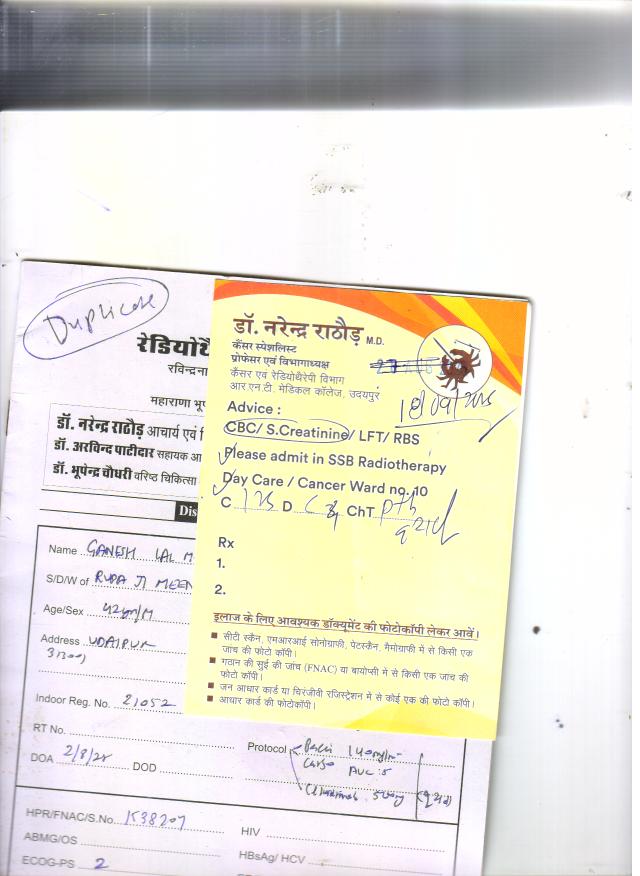 Duplicate
रेडियोथै
रविन्द्रना
महाराणा भू
डॉ. नरेन्द्र राठौड़ आचार्य एवं
डॉ. अरविन्द पाटीदार सहायक आ
डॉ. भूपेन्द्र चौधरी वरिष्ठ चिकित्सा
Dis
Name GANESH LAL M
S/D/W of RUPA JI MEEN
Age/Sex 42yr/M
Address UDAIPUR
Indoor Reg. No. 21052
RT No.
DOA 2/8/25 DOD
Protocol
AUC 5
HPR/FNAC/S.No. 1538207
HIV
ABMG/OS
HBsAg/ HCV
ECOG-PS 2
डॉ. नरेन्द्र राठौड़ M.D.
कैंसर स्पेशलिस्ट
प्रोफेसर एवं विभागाध्यक्ष
कैंसर एवं रेडियोथैरेपी विभाग
आर.एन.टी. मेडिकल कॉलेज, उदयपुर
Advice :
CBC/ S.Creatinine/ LFT/ RBS
Please admit in SSB Radiotherapy
Day Care / Cancer Ward no. 10
C D ChT
Rx
1.
2.
इलाज के लिए आवश्यक डॉक्यूमेंट की फोटोकॉपी लेकर आवें।
सीटी स्कैन, एमआरआई सोनोग्राफी, पेटस्कैन, मैमोग्राफी में से किसी एक
जांच की फोटो कॉपी।
गठान की सुई की जांच (FNAC) या बायोप्सी में से किसी एक जांच की
फोटो कॉपी।
जन आधार कार्ड या चिरंजीवी रजिस्ट्रेशन में से कोई एक की फोटो कॉपी।
आधार कार्ड की फोटोकॉपी।